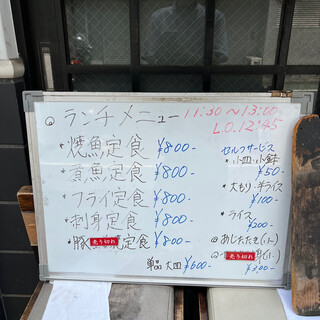 ランチメニュー 11:30～13:00
L.O.12:45
・焼魚定食 ¥800-
・煮魚定食 ¥800-
・フライ定食 ¥800-
・刺身定食 ¥800-
・豚 売り切れ 定食 ¥800-
単品 大皿 ¥600-
セルフサービス
・小皿・小鉢
¥50-
・大もり・半ライス
¥100-
・ライス
¥200-
あじたたき(小)
売り切れ (小)
¥300-